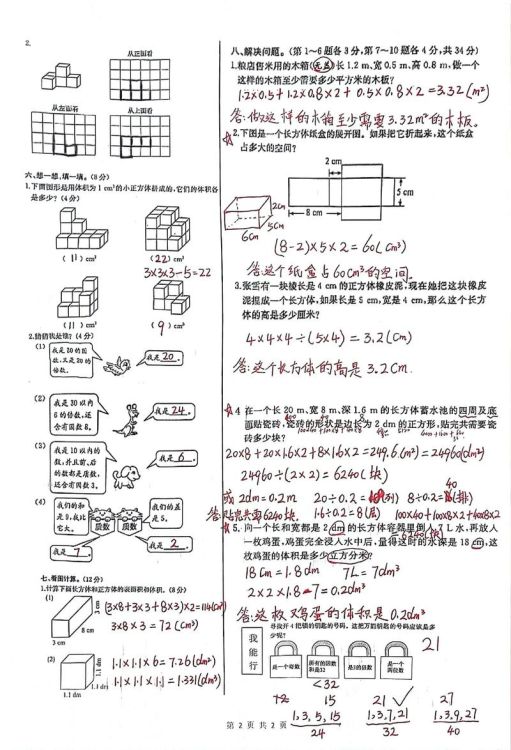 2.
从正面看
从左面看
从上面看
六、想一想,填一填。(8分)
1.下面图形是用体积为1 cm³的小正方体搭成的,它们的体积各
是多少?(4分)
( 11 ) cm³
( 22 ) cm³
3×3×3-5=22
( 11 ) cm³
( 9 ) cm³
2.猜猜我是谁?(4分)
(1)
我是20的因
数,又是20的
倍数。
我是 20 。
(2)
我是30以内
6的倍数,还
含有因数8。
我是 24 。
(3)
我是10以内的
数,并且前、后
的数都是质数,
还含有因数3。
我是 6 。
(4)
我们的和
是9,我比
它大。
质数
质数
我们的差
是5。
我是 7 。
我是 2 。
七、看图计算。(12分)
1.计算下面长方体和正方体的表面积和体积。(8分)
(1)
3 cm
8 cm
3 cm
(3×8+3×3+8×3)×2=114(cm²)
3×8×3=72(cm³)
(2)
1.1 dm
1.1 dm
1.1 dm
1.1×1.1×6=7.26(dm²)
1.1×1.1×1.1=1.331(dm³)
八、解决问题。(第1~6题各3分,第7~10题各4分,共34分)
1.粮店售米用的木箱(无盖)长1.2 m、宽0.5 m、高0.8 m,做一个
这样的木箱至少需要多少平方米的木板?
1.2×0.5+1.2×0.8×2+0.5×0.8×2=3.32(m²)
答:做这样的木箱至少需要3.32m²的木板。
2.下图是一个长方体纸盒的展开图。如果把它折起来,这个纸盒
占多大的空间?
2 cm
5 cm
8 cm
2cm
5cm
6cm
(8-2)×5×2=60(cm³)
答:这个纸盒占60cm³的空间。
3.张雷有一块棱长是4 cm的正方体橡皮泥,现在她把这块橡皮
泥捏成一个长方体,如果长是5 cm,宽是4 cm,那么这个长方
体的高是多少厘米?
4×4×4÷(5×4)=3.2(cm)
答:这个长方体的高是3.2cm.
4.在一个长20 m、宽8 m、深1.6 m的长方体蓄水池的四周及底
面贴瓷砖,瓷砖的形状是边长为2 dm的正方形,贴完共需要瓷
砖多少块?
20×8+20×1.6×2+8×1.6×2=249.6(m²)=24960(dm²)
24960÷(2×2)=6240(块)
或 2dm=0.2m 20÷0.2=100(列) 8÷0.2=40(排)
1.6÷0.2=8(层) 100×40+100×8×2+40×8×2
=6240(块)
答:贴完共需6240块.
5.向一个长和宽都是2 dm的长方体容器里倒入7 L水,再放入
一枚鸡蛋,鸡蛋完全浸入水中后,量得这时的水深是18 cm,这
枚鸡蛋的体积是多少立方分米?
18cm=1.8dm 7L=7dm³
2×2×1.8-7=0.2dm³
答:这枚鸡蛋的体积是0.2dm³
我能行
寻找开4把锁的钥匙的号码。这把万能钥匙的号码应该是多
少呢?
21
是一个奇数
所有的因数和是32
是3的倍数
是一个两位数
<32
12 15 21 ✓ 27
1,3,5,15 1,3,7,21 1,3,9,27
24 32 40
第 2 页 共 2 页